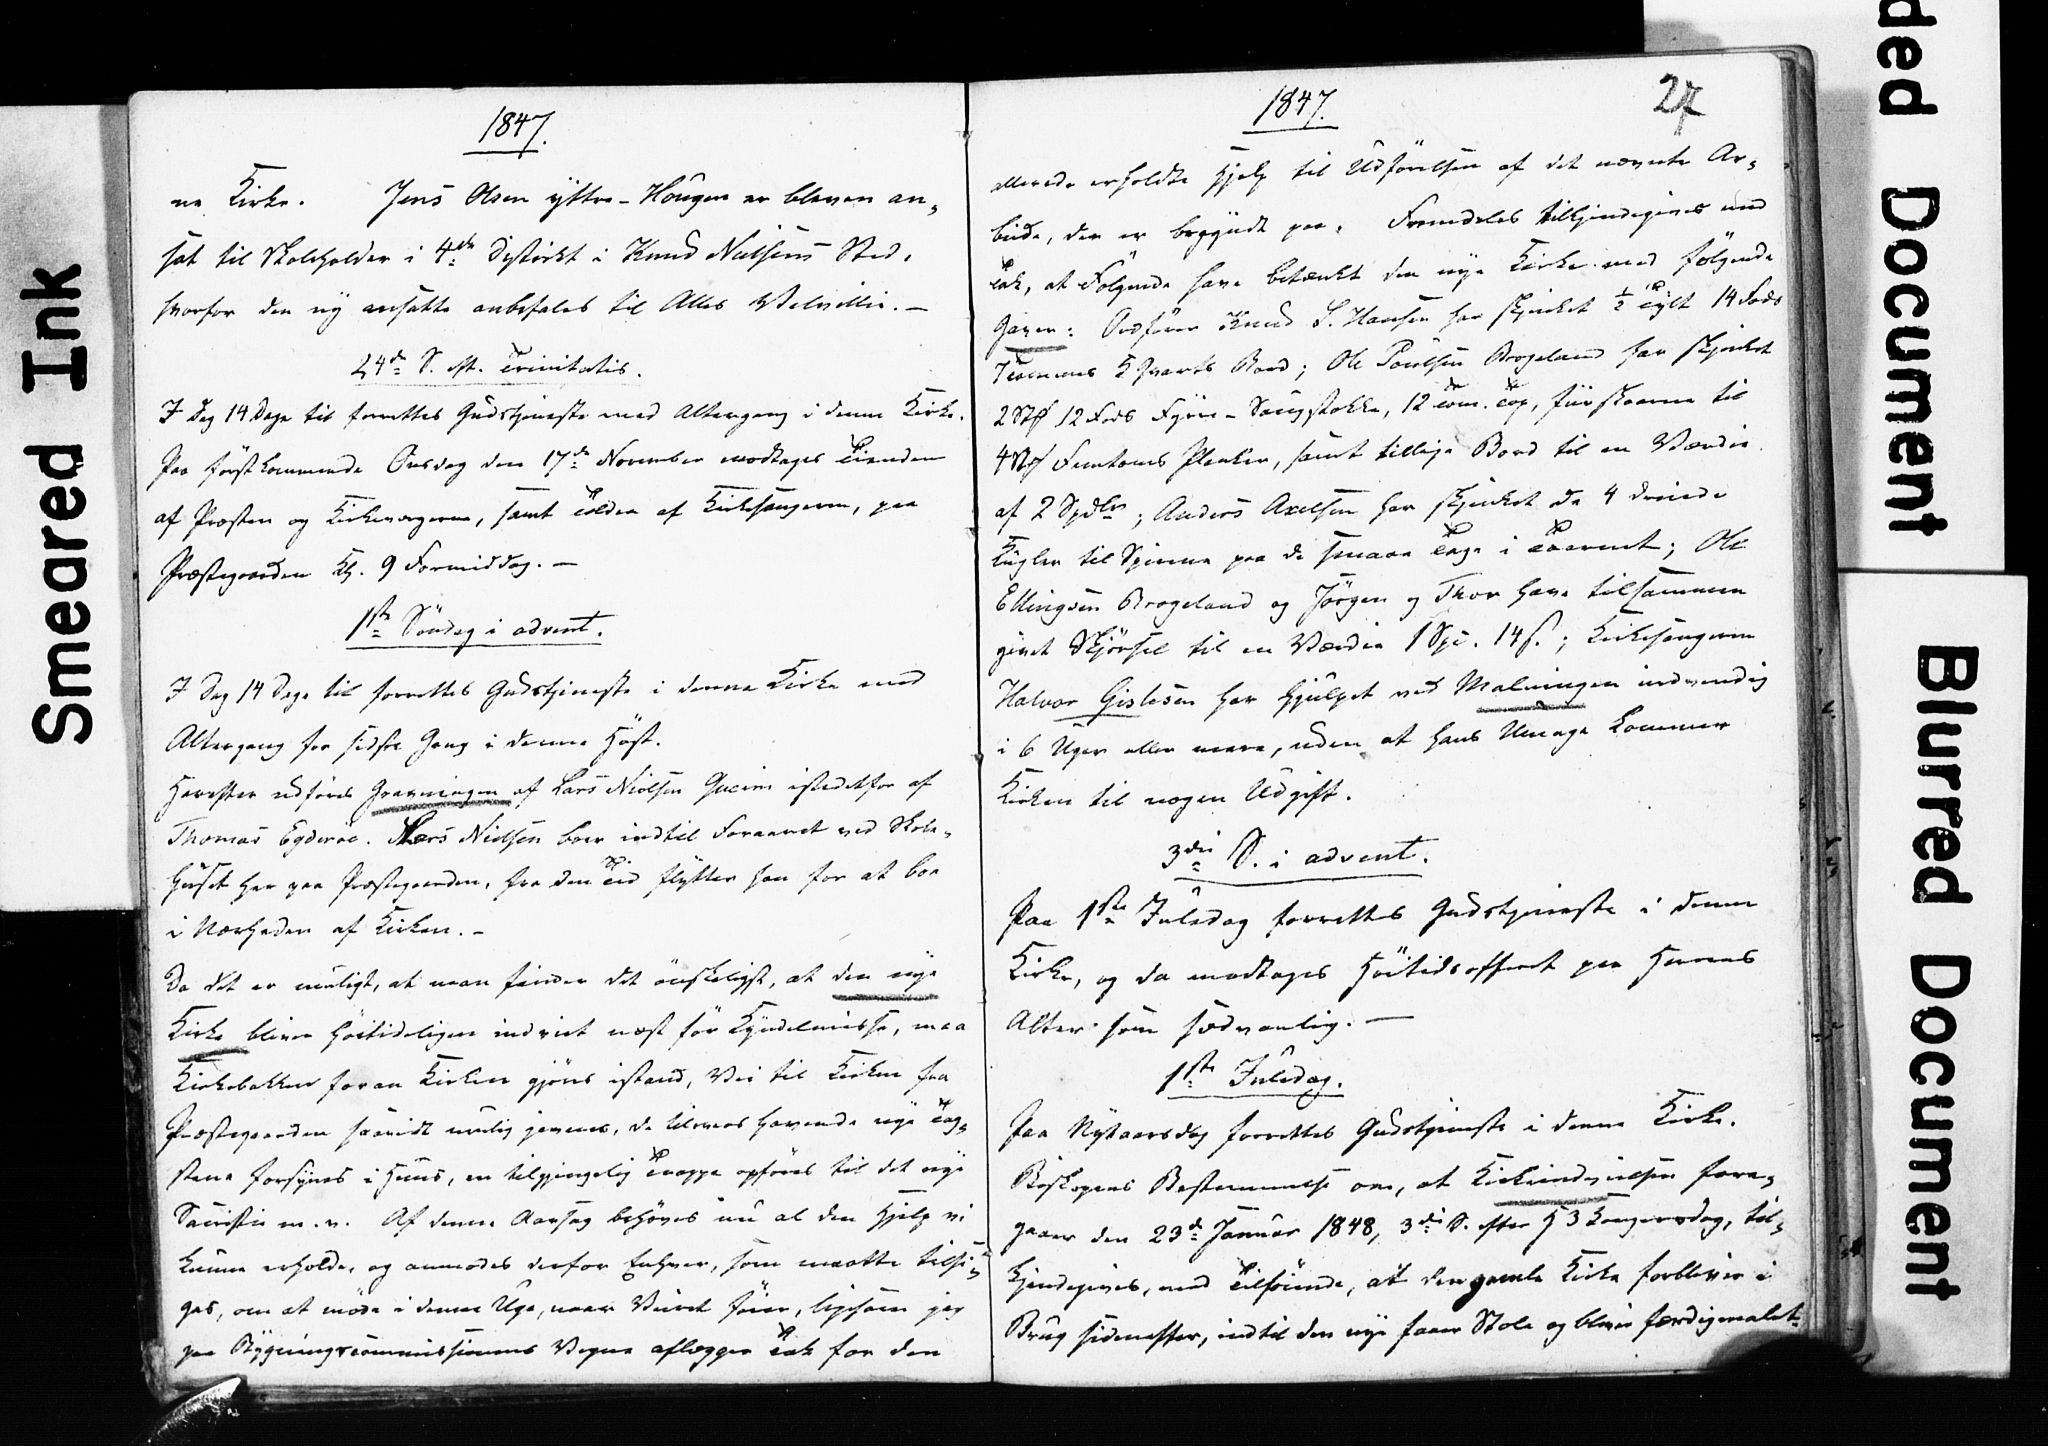 1847.
ne Kirke. Jens Olsen yttre-Hougen er bleven an-
sat til Skoleholder i 4de District i Knud Nielsens Sted,
hvorfor den ny ansatte anbefales til Alles Velvillie. —
24de S. eft. Trinitatis.
I Dag 14 Dage til forrettes Gudstjeneste med Altergang i denne Kirke.
Paa förstkommende Onsdag den 17de November modtages Tienden
af Præsten og Kirkeværgerne, samt Tolden af Kirkesangeren, paa
Præstegaarden Kl. 9 Formiddag. —
1ste Söndag i advent.
I Dag 14 Dage til forrettes Gudstjeneste i denne Kirke med
Altergang for sidste Gang i denne Höst.
Herefter udföres Gravningen af Lars Nielsen istedetfor af
Thomas Egderöe. Lars Nielsen boer indtil Foraaret ved Skole-
huset her paa Præstegaarden, fra den Tid flytter han for at boe
i Nærheden af Kirken. —
Da det er muligt, at man finder det önskeligst, at den nye
Kirke bliver höitideligen indviet næst för Kyndelmisse, maa
Kirkebakken foran Kirken gjöres istand, Vei til Kirken fra
Præstegaarden saavidt mulig jevnes, de havende nye Tag-
stene forsynes i Huus, en tilgjengelig Trappe opföres til det nye
Sacristie m. v. Af denne Aarsag behöves nu al den Hjelp vi
kunne erholde, og anmodes derfor Enhver, som maatte tilsi-
ges, om at möde i denne Uge, naar Veiret föier, ligesom jeg
paa Bygningscommissionens Vegne aflægger Tak for den
1847.
27
allerede erholdte Hjelp til Udförelsen af det nævnte Ar-
beide, der er begyndt paa. Fremdeles tilkjendegives med
Tak, at Fölgende have betænkt den nye Kirke med fölgende
Gaver: Ordförer Knud S. Hansen har skjenket ½ Tylt 14 Fods
Tommes Qvarts Bord; Ole Poulsen Brogeland har skjenket
2 Stk 12 Fods Fyrre-Saugstokke, 12 Tom. Top, skaarne til
4 Stk Femtoms Planker, samt tillige Bord til en Værdie
af 2 Spdlr; Anders Axelsen har skjenket de 4 dreiede
Kugler til Spirene paa de smaae Tage i Taarnet; Ole
Ellingsen Brogeland og Jörgen og Thor have tilsammen
givet Skjörsel til en Værdie 1 Spe. 14 s.; Kirkesangeren
Halvor Gislesen har hjulpet ved Malningen indvendig
i 6 Uger eller mere, uden at hans Umage kommer
Kirken til nogen Udgift.
3die S. i advent.
Paa 1ste Juledag forrettes Gudstjeneste i denne
Kirke, og da modtages Höitidsofferet paa Herrens
Alter som sædvanlig. —
1ste Juledag.
Paa Nytaarsdag forrettes Gudstjeneste i denne Kirke.
Biskopens Bestemmelse om, at Kirkeindvielsen fore-
gaaer den 23de Januar 1848, 3die S. efter H 3 Kongersdag, til-
kjendegives, med Tilföiende, at den gamle Kirke forbliver i
Brug sidenefter, indtil den nye faaer Stole og bliver færdigmalet.
Smeared Ink
ded Document
Blurred Document